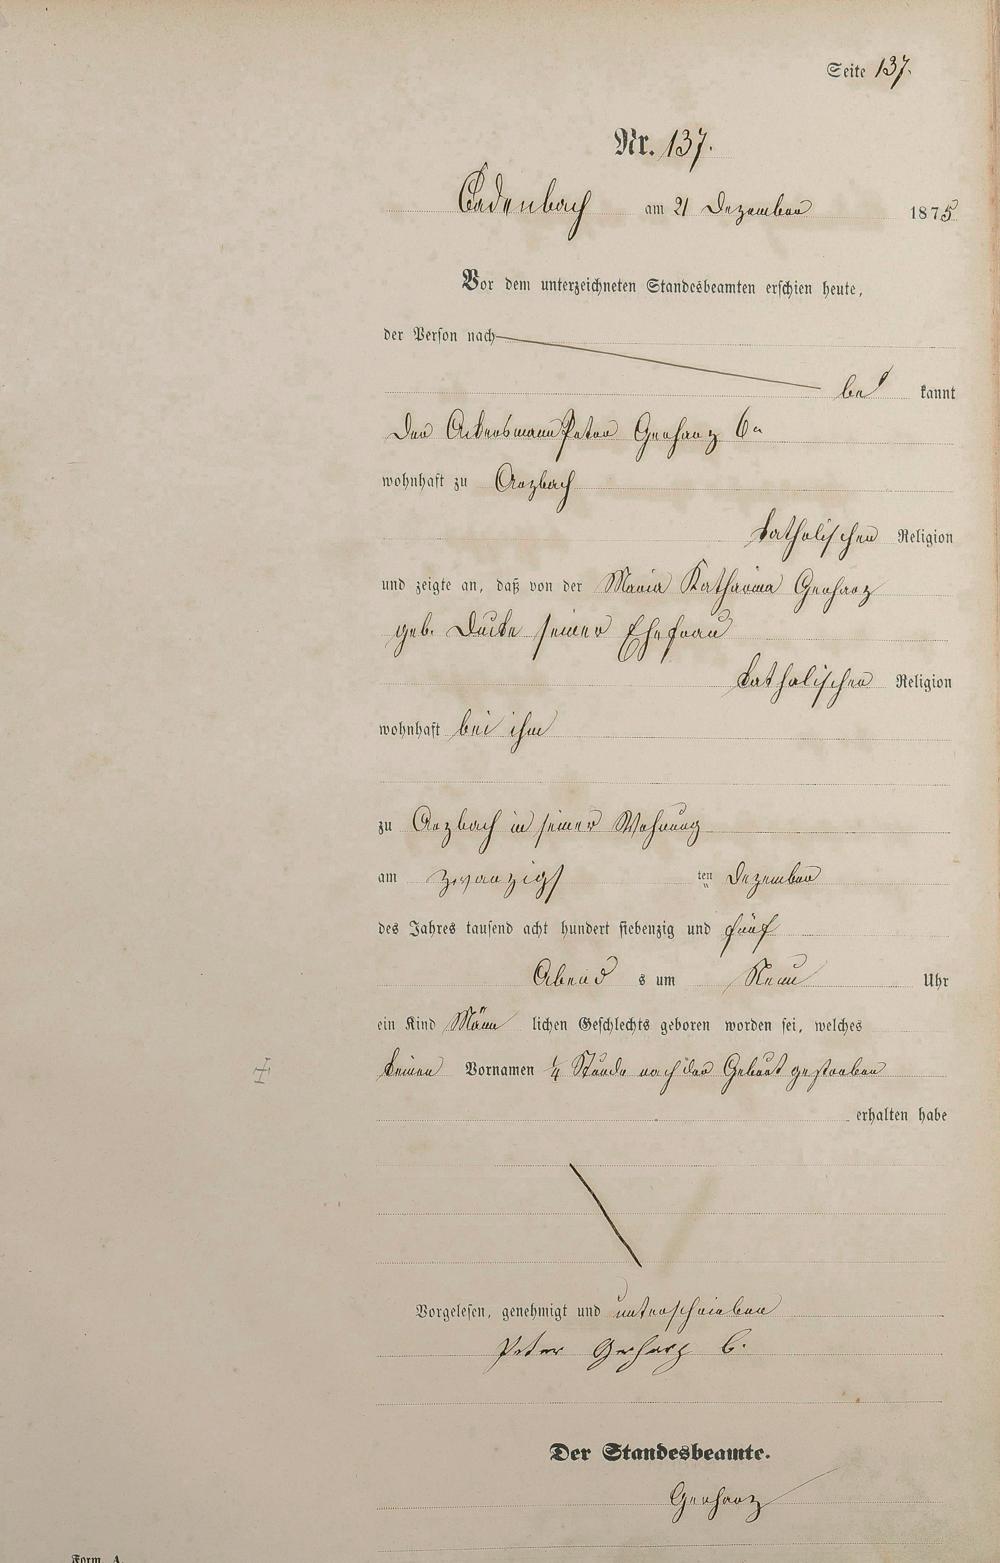 Seite 137.
Nr. 137.
Cadenbach am 21 Dezember 1875
Vor dem unterzeichneten Standesbeamten erschien heute,
der Person nach
be kannt
Der Ackersmann Peter Gerharz 6er
wohnhaft zu Arzbach
katholischer Religion
und zeigte an, daß von der Maria Katharina Gerharz
geb. seiner Ehefrau
katholischer Religion
wohnhaft bei ihm
zu Arzbach in seiner Wohnung
am zwanzigs ten Dezember
des Jahres tausend acht hundert siebenzig und fünf
Abend s um Neun Uhr
ein Kind Männ lichen Geschlechts geboren worden sei, welches
keinen Vornamen ¼ Stunde nach der Geburt gestorben
erhalten habe
Vorgelesen, genehmigt und unterschrieben
Peter Gerharz 6.
Der Standesbeamte.
Gerharz
Form. A.